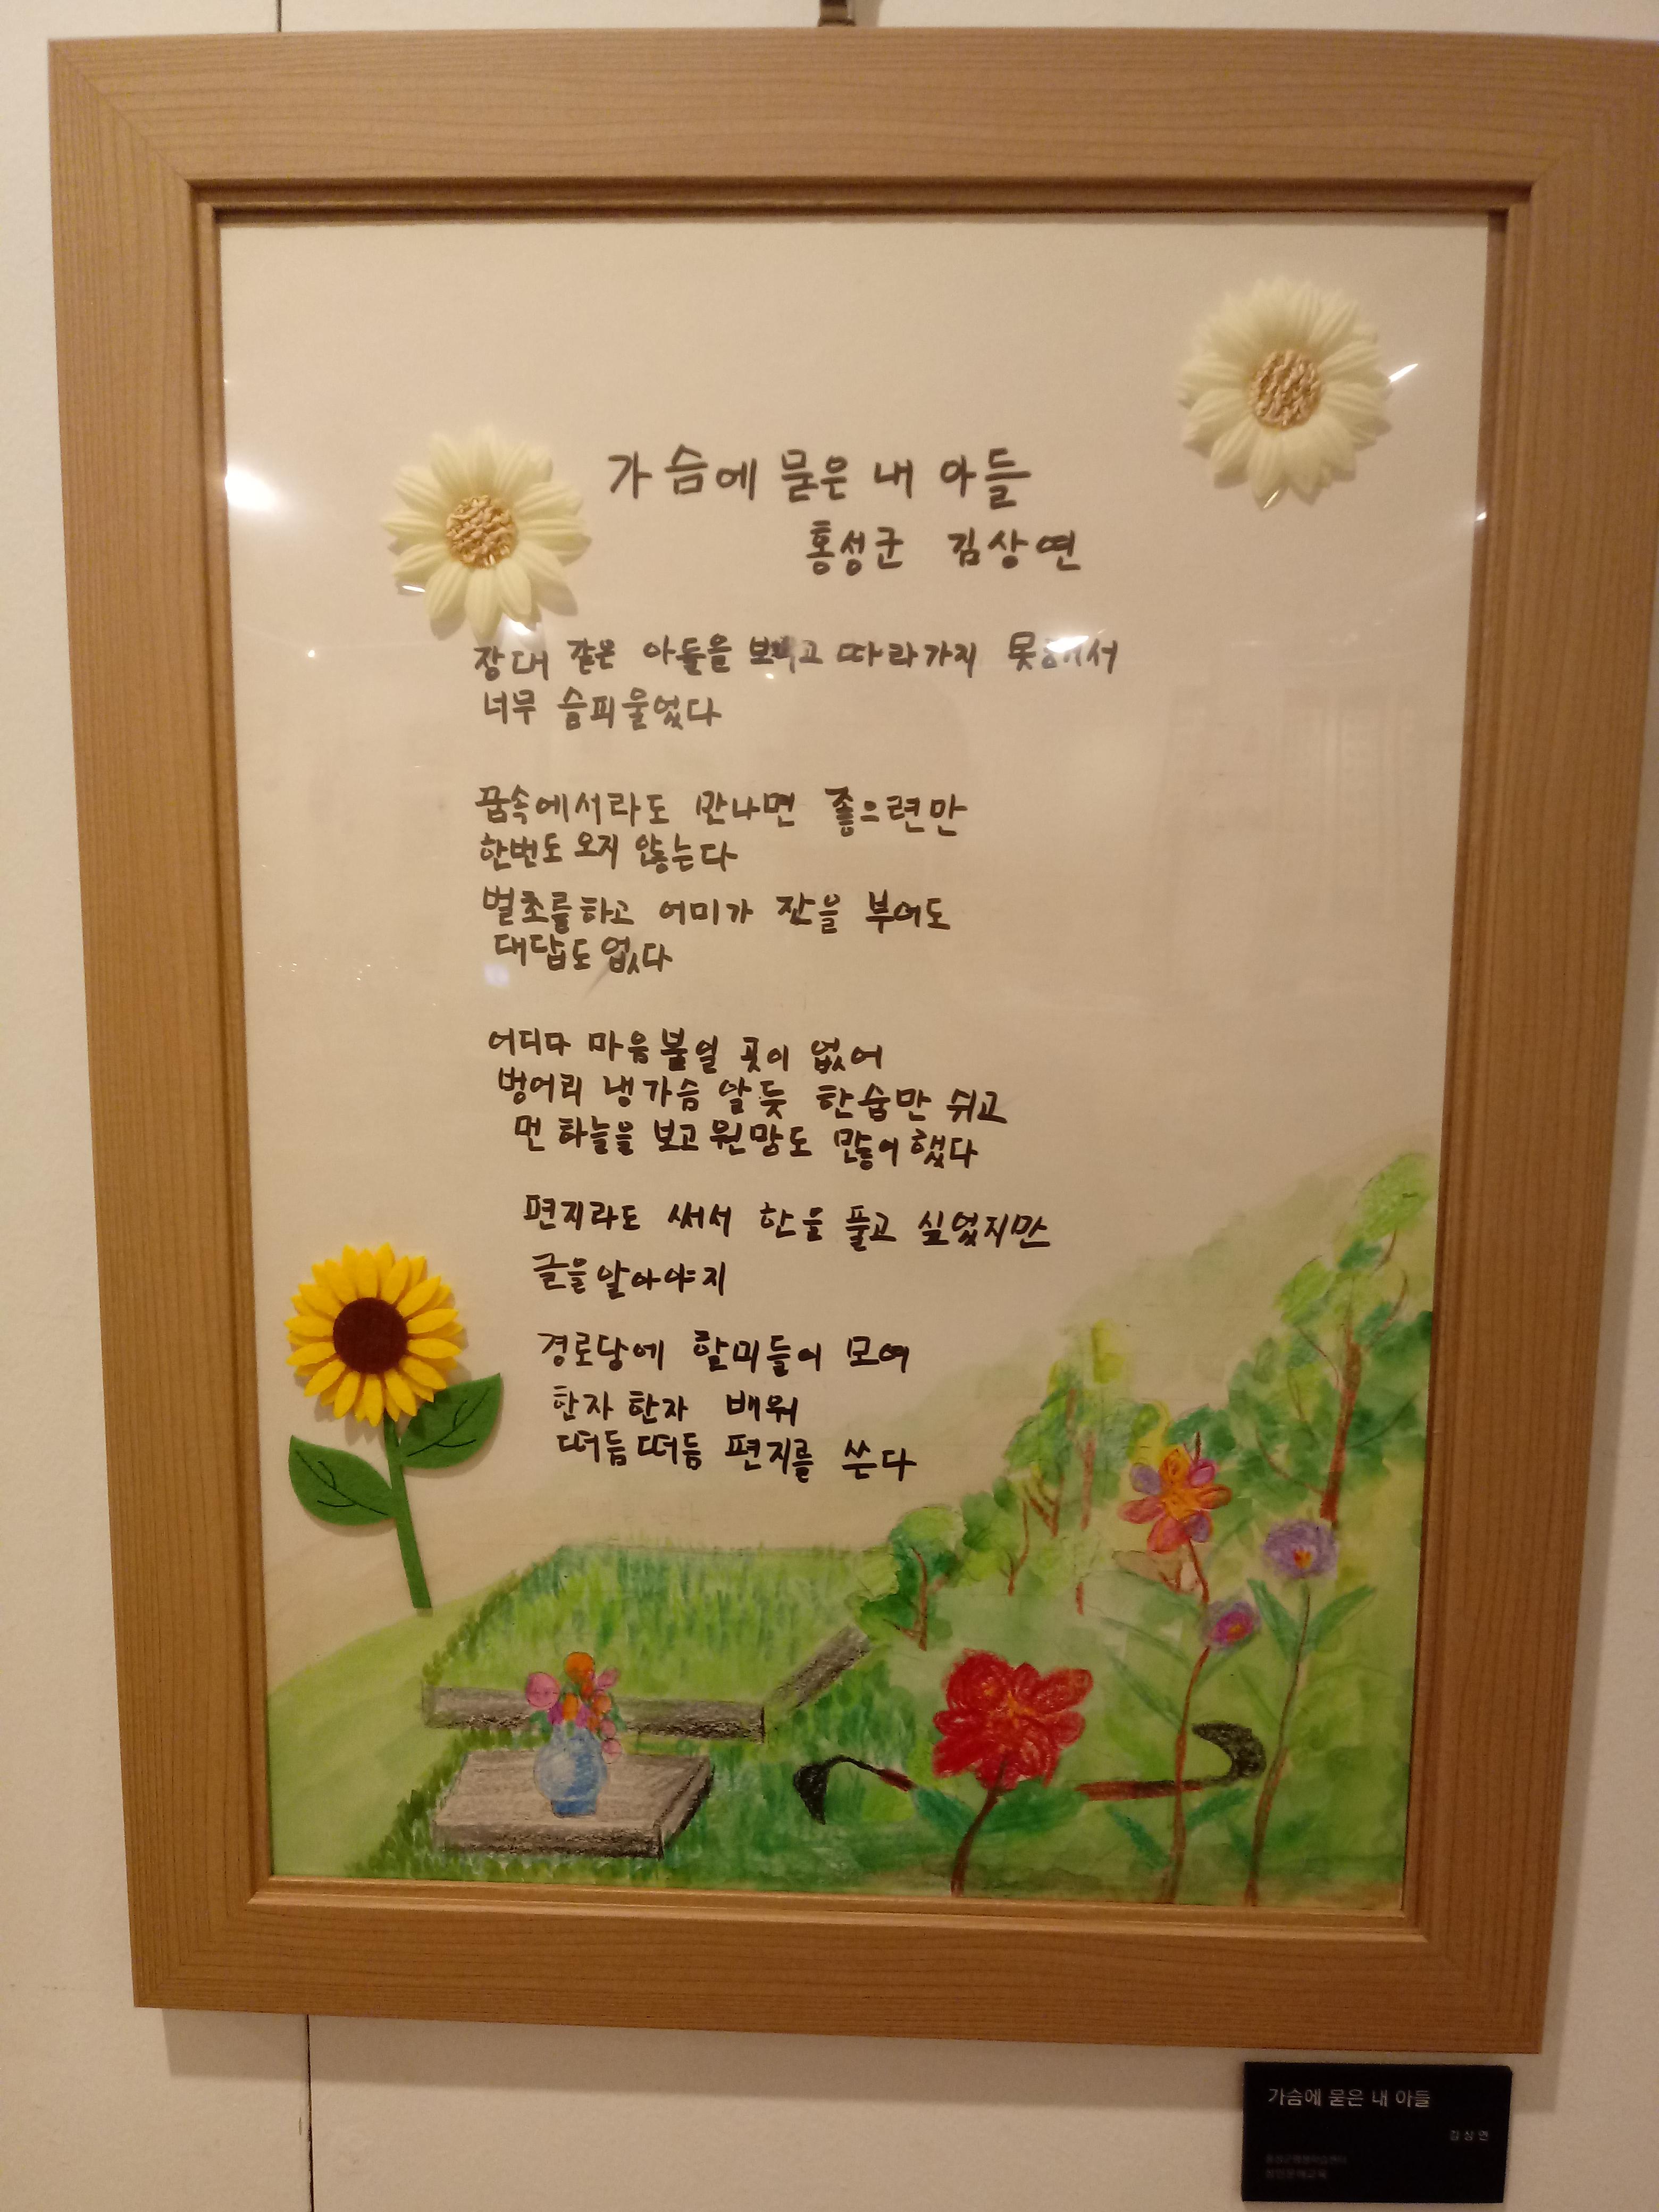 가슴에 묻은 내 아들
홍성군 김상연
장대 같은 아들을 보내고 따라가지 못해서
너무 슬피울었다
꿈속에서라도 만나면 좋으련만
한번도 오지 않는다
벌초를하고 어미가 잔을 부어도
대답도없다
어디다 마음붙일 곳이 없어
벙어리 냉가슴 앓듯 한숨만 쉬고
먼 하늘을 보고 원망도 많이했다
편지라도 써서 한을 풀고 싶었지만
글을알아야지
경로당에 할미들이 모여
한자 한자 배워
떠듬떠듬 편지를 쓴다
가슴에 묻은 내 아들